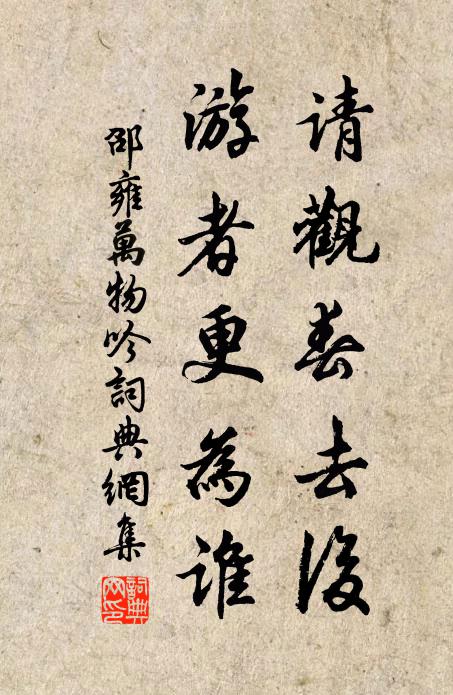 请觀春去後
游者更為誰
邵雍萬物吟詞典網集
詞典网印